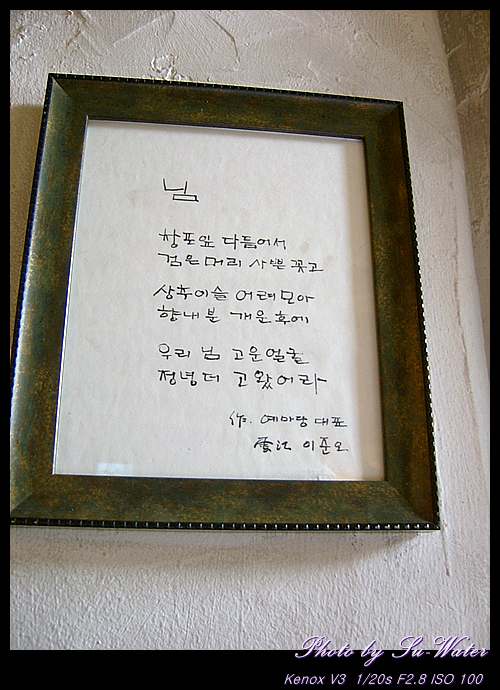 님
창포잎 다듬어서
검은머리 사쁜 꽂고
상추이슬 어려모아
향내분 개운후에
우리 님 고운얼굴
정녕더 고왔어라
作. 예마당 대표
雲江 이준오
Photo by Su-Water
Kenox V3 1/20s F2.8 ISO 100